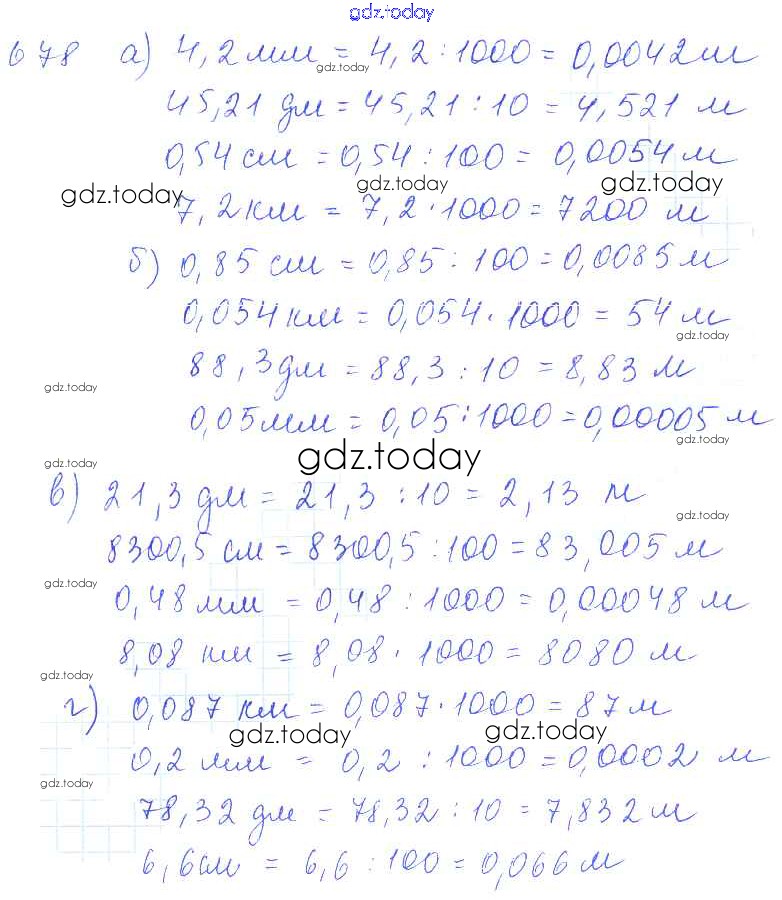 gdz.today
678 а) 4,2 мм = 4,2 : 1000 = 0,0042 м
gdz.today
45,21 дм = 45,21 : 10 = 4,521 м
0,54 см = 0,54 : 100 = 0,0054 м
gdz.today gdz.today gdz.today
7,2 км = 7,2 · 1000 = 7200 м
б) 0,85 см = 0,85 : 100 = 0,0085 м
0,054 км = 0,054 · 1000 = 54 м
gdz.today
88,3 дм = 88,3 : 10 = 8,83 м
gdz.today
0,05 мм = 0,05 : 1000 = 0,00005 м
gdz.today
gdz.today gdz.today
в) 21,3 дм = 21,3 : 10 = 2,13 м
gdz.today
8300,5 см = 8300,5 : 100 = 83,005 м
gdz.today
0,48 мм = 0,48 : 1000 = 0,00048 м
8,08 км = 8,08 · 1000 = 8080 м
gdz.today
г) 0,087 км = 0,087 · 1000 = 87 м
gdz.today gdz.today
0,2 мм = 0,2 : 1000 = 0,0002 м
gdz.today
78,32 дм = 78,32 : 10 = 7,832 м
6,6 см = 6,6 : 100 = 0,066 м